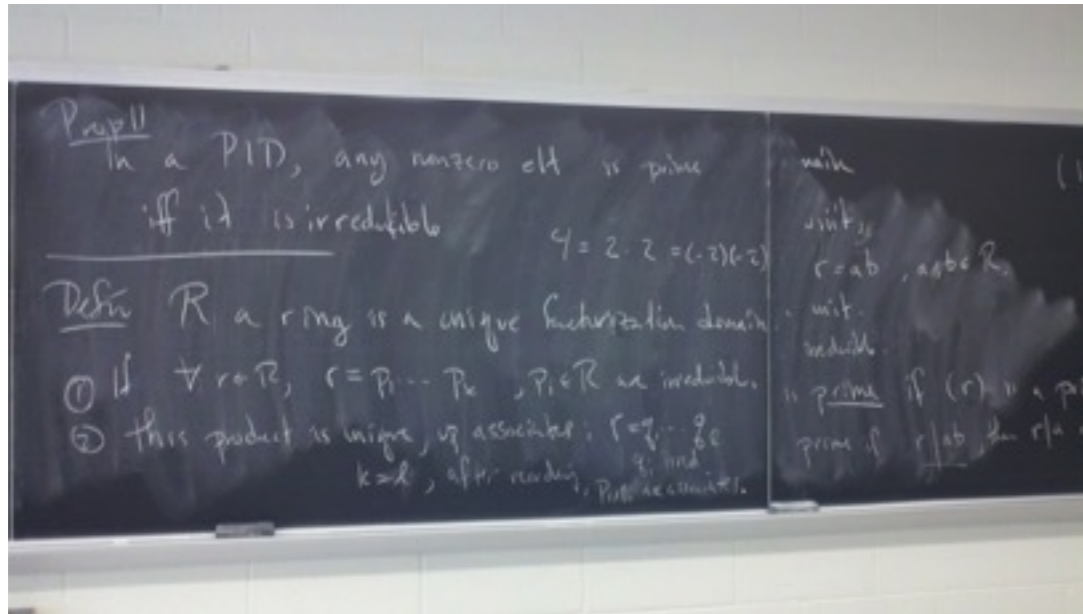 Prop 11
In a PID, any nonzero elt is prime
iff it is irreducible
4 = 2 · 2 = (-2)(-2)
Defn R a ring is a unique factorization domain
① If ∀ r ∈ R, r = p₁ ... pₖ , pᵢ ∈ R are irreducible.
② this product is unique, up associates: r = q₁ ... qℓ
k = ℓ, after reordering, are associates.
unit
r = ab , a,b ∈ R,
unit.
is prime if (r) is a
prime if r|ab, then r|a